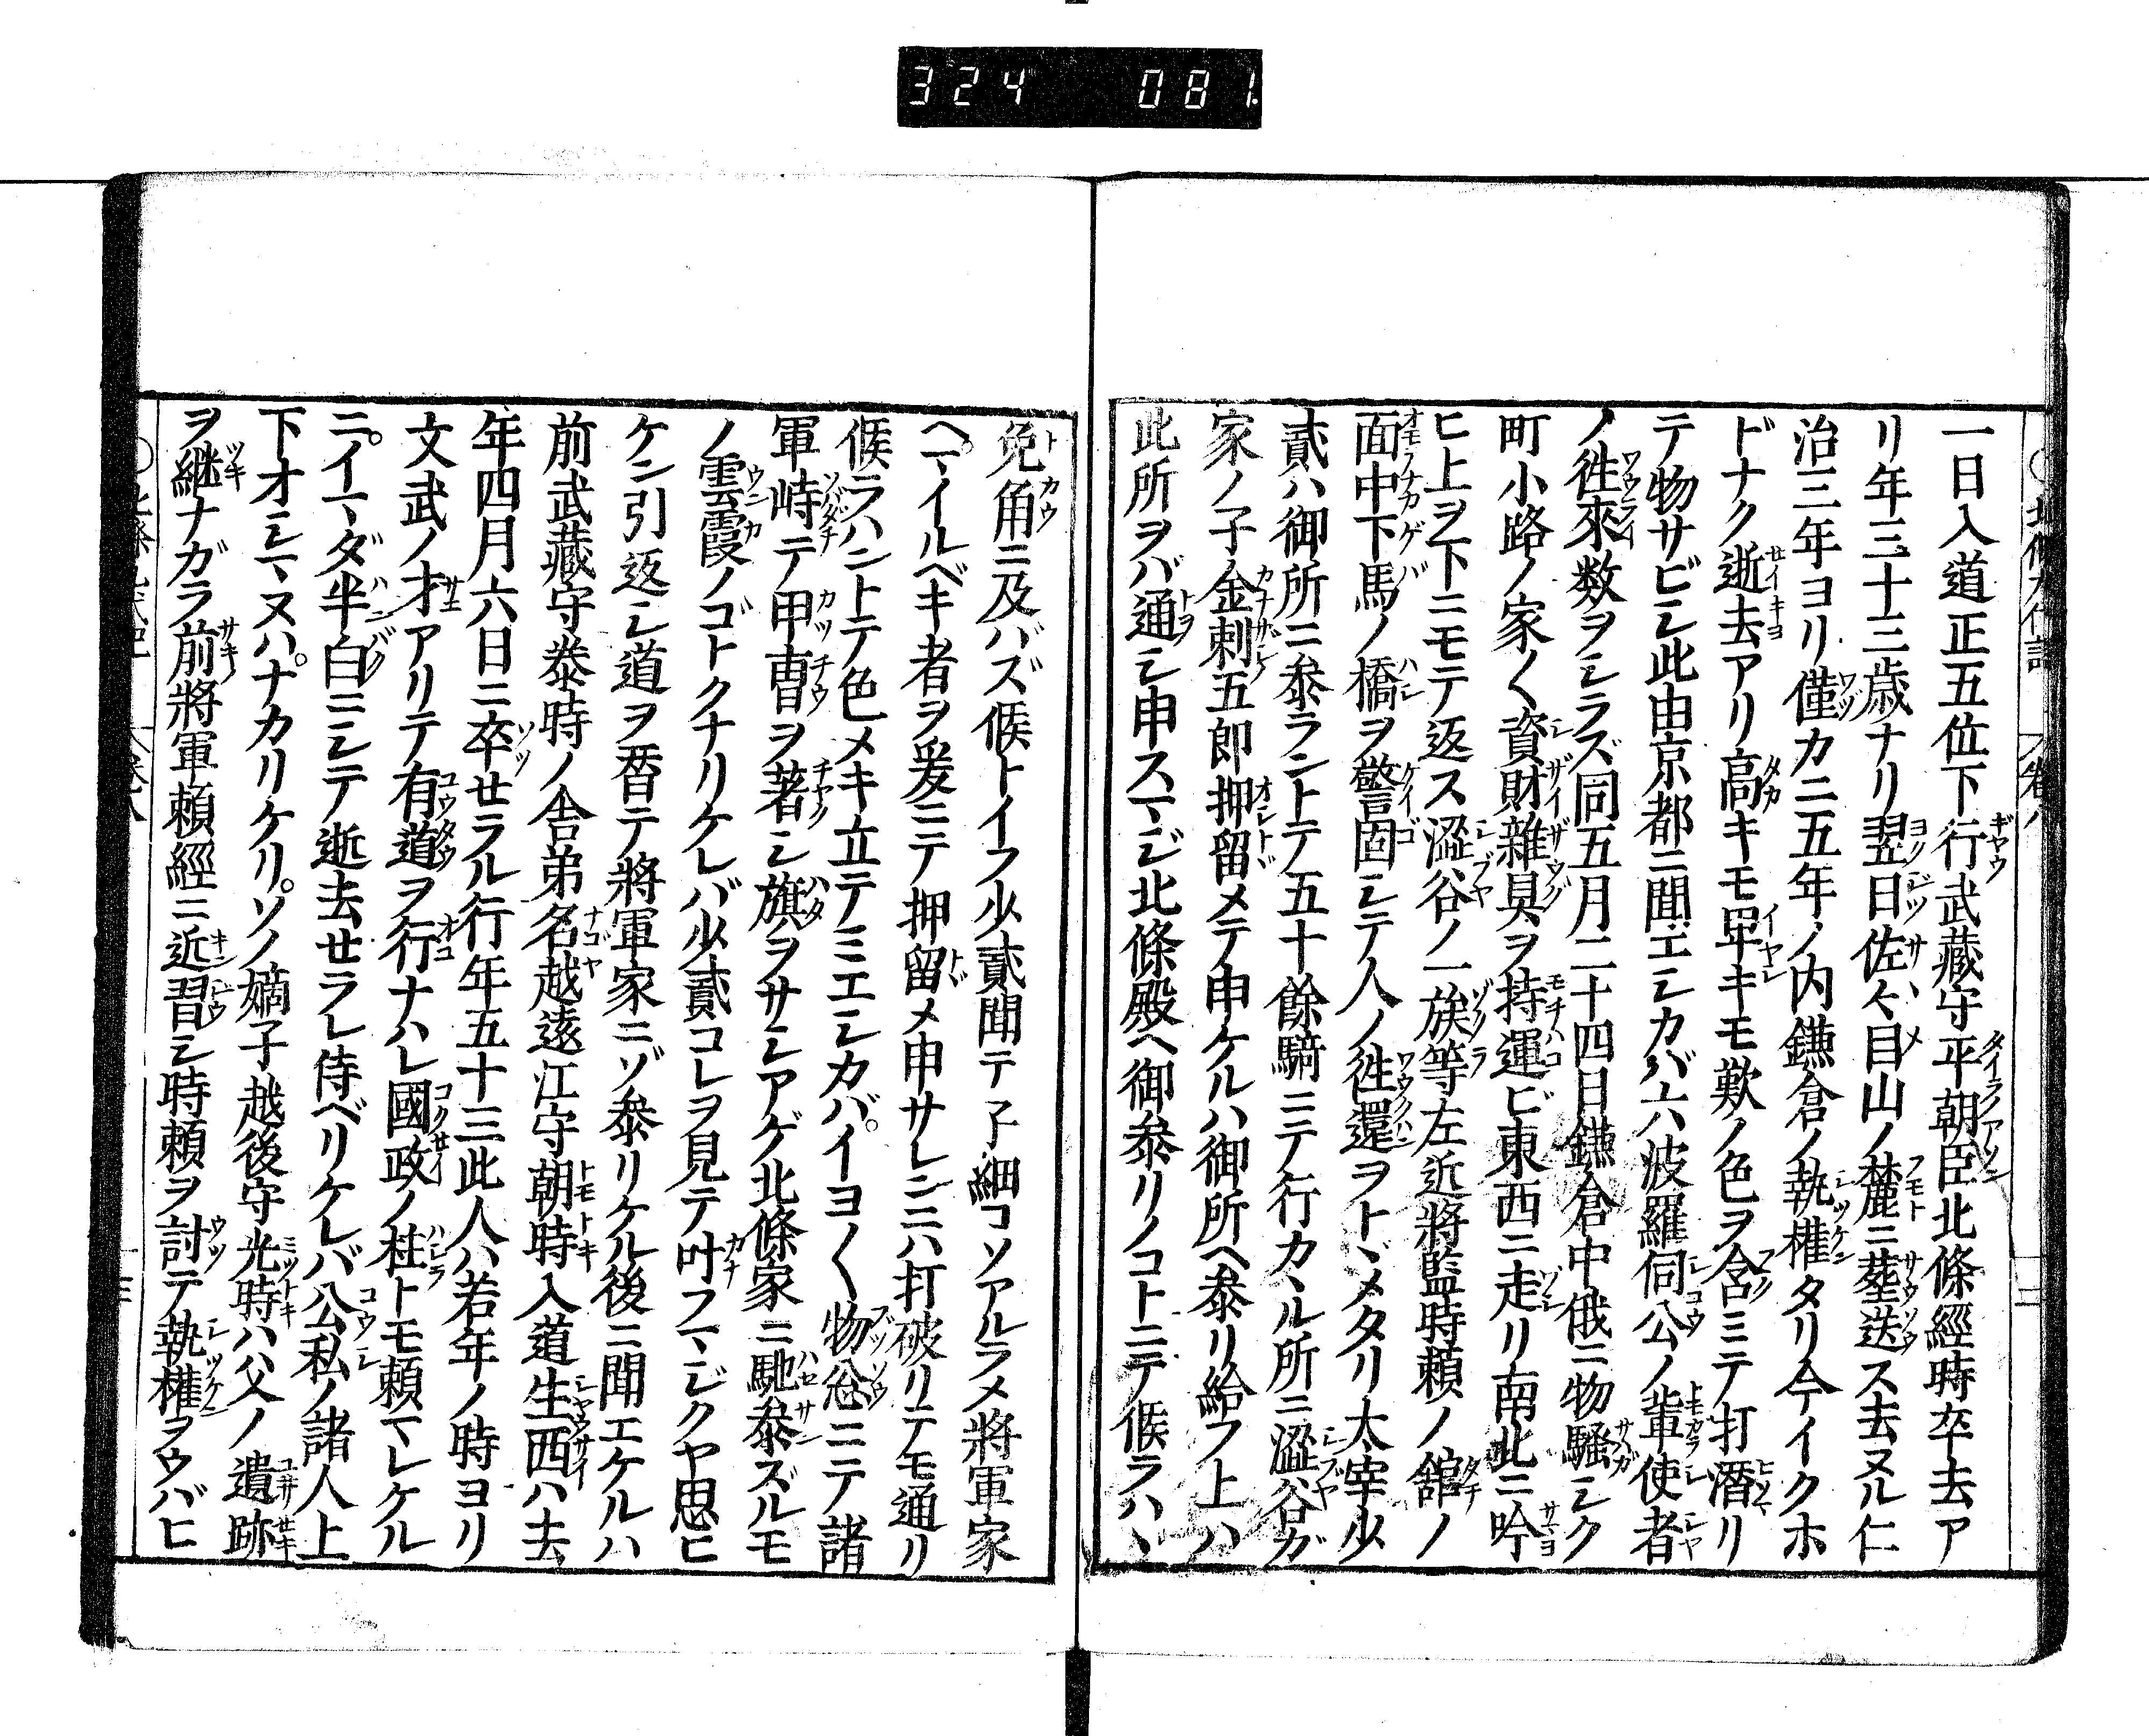 324 081
一日入道正五位下行武藏守平朝臣北條經時卒去ア
リ年三十三歳ナリ翌日佐々目山ノ麓ニ葬送ス去ヌル仁
治三年ヨリ僅カニ五年ノ内鎌倉ノ執權タリ今イクホ
ドナク逝去アリ高キモ卑キモ歎ノ色ヲ含ミテ打潛リ
テ物サビシ此由京都ニ聞エシカバ六波羅伺公ノ輩使者
ノ徃來数ヲシラズ同五月二十四日鎌倉中俄ニ物騒シク
町小路ノ家〱資財雜具ヲ持運ビ東西ニ走リ南北ニ吟
ヒ上ヲ下ニモテ返ス澁谷ノ一族等左近將監時頼ノ舘ノ
面中下馬ノ橋ヲ警固シテ人ノ徃還ヲトヾメタリ太宰少
貳ハ御所ニ參ラントテ五十餘騎ニテ行カヽル所ニ澁谷ガ
家ノ子金刺五郎押留メテ申ケルハ御所ヘ參リ給フ上ハ
此所ヲバ通シ申スマジ北條殿ヘ御參リノコトニテ候ラハヽ
兔角ニ及バズ候トイフ少貳聞テ子細コソアルラメ將軍家
ヘマイルベキ者ヲ爰ニテ押留メ申サレンニハ打破リテモ通リ
候ラハントテ色メキ立テミエシカバ。イヨ〱物忩ニテ諸
軍峙テ甲冑ヲ著シ旗ヲサシアゲ北條家ニ馳參ズルモ
ノ雲霞ノゴトクナリケレバ少貳コレヲ見テ叶フマジクヤ思ヒ
ケン引返シ道ヲ替テ將軍家ニゾ參リケル後ニ聞エケルハ
前武藏守泰時ノ舎弟名越遠江守朝時入道生西ハ去
年四月六日ニ卒セラル行年五十三此人ハ若年ノ時ヨリ
文武ノ才アリテ有道ヲ行ナハレ國政ノ柱トモ頼マレケル
ニ。イマダ半白ニシテ逝去セラレ侍ベリケレバ公私ノ諸人上
下オシマヌハ。ナカリケリ。ソノ嫡子越後守光時ハ父ノ遺跡
ヲ継ナガラ前將軍頼經ニ近習シ時頼ヲ討テ執權ヲウバヒ